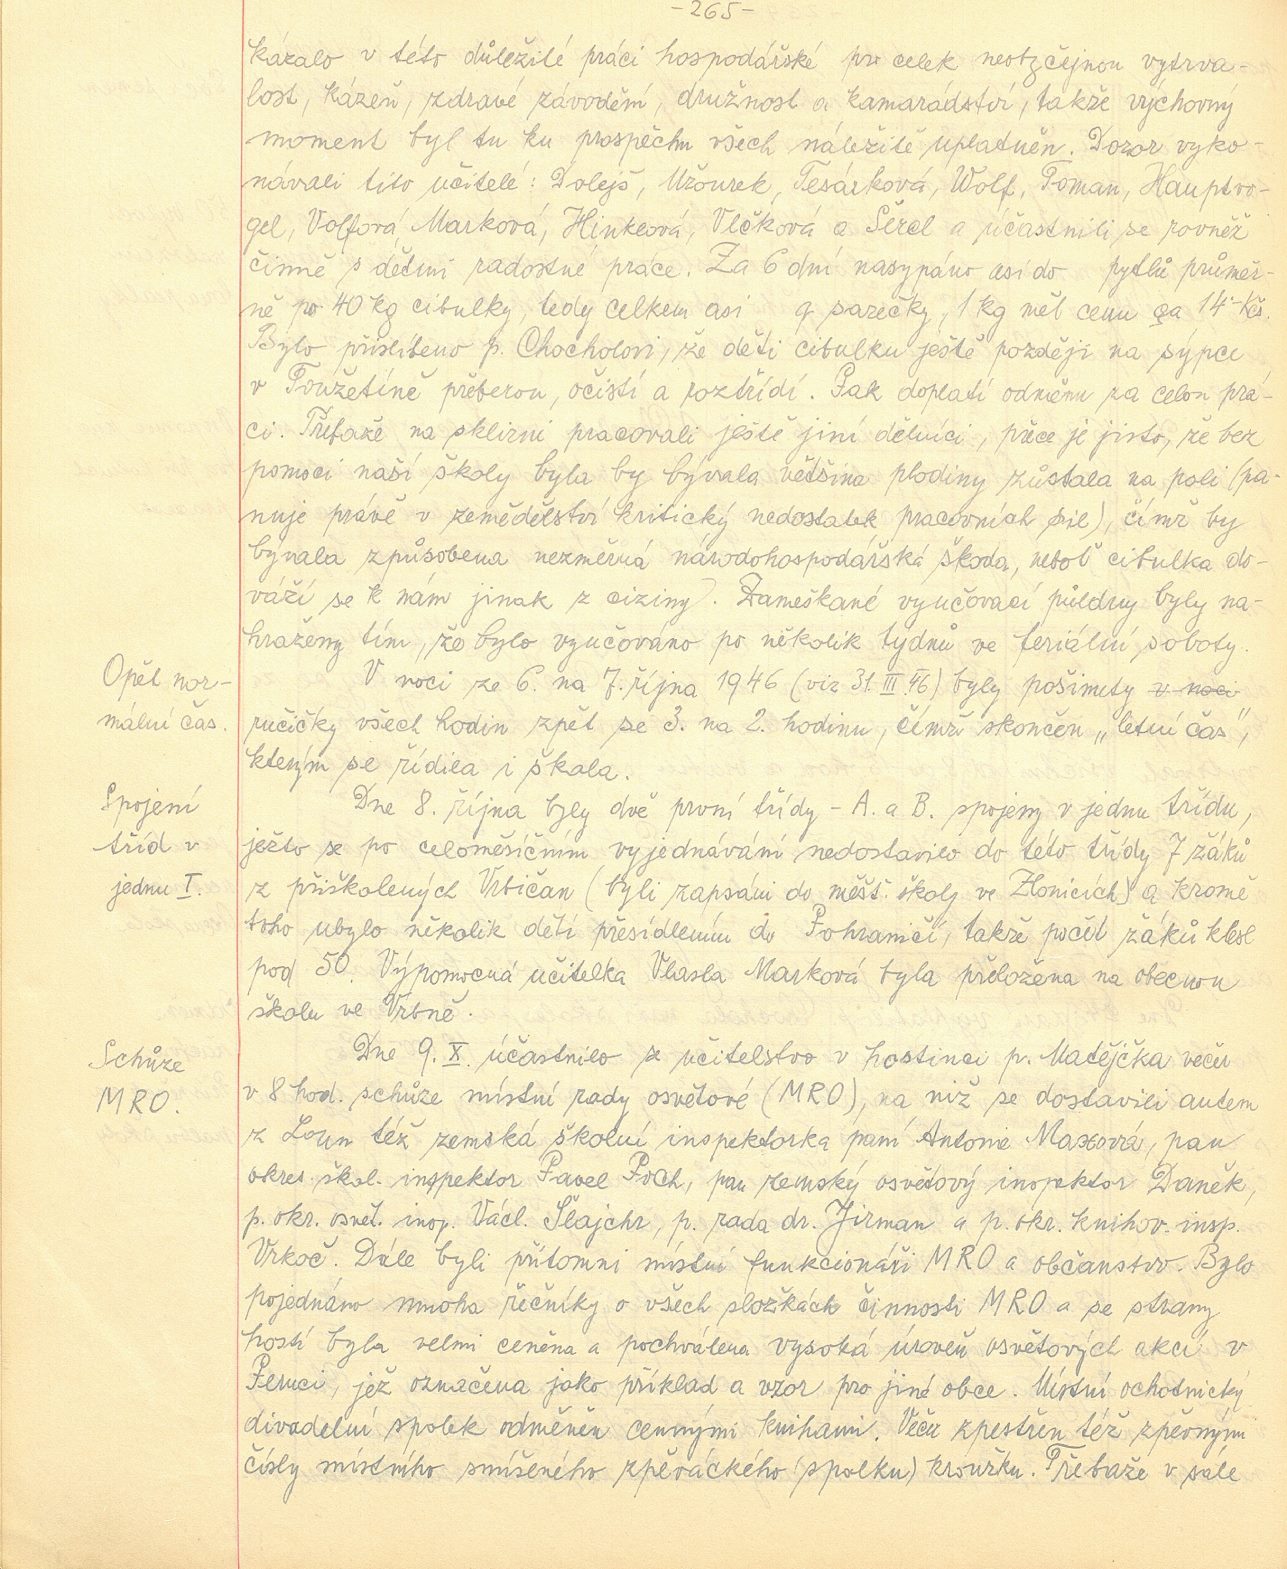 -265-
kázalo v této důležité práci hospodářské pro celek neobyčejnou vytrva-
lost, kázeň, zdravé závodění, družnost a kamarádství, takže výchovný
moment byl tu ku prospěchu všech náležitě uplatněn. Dozor vyko-
návali tito učitelé: Dolejš, Mžourek, Tesárková, Wolf, Toman, Hauptvo-
gel, Volfová, Marková, Hinkeová, Vlčková a Šércl a účastnili se rovněž
činně s dětmi radostné práce. Za 6 dní nasypáno asi do pytlů průměr-
ně po 40 kg cibulky, tedy celkem asi q sazečky, 1 kg měl cenu ca 14·- Kčs.
Bylo přislíbeno p. Chocholovi, že děti cibulku ještě později na sýpce
v Toužetíně přeberou, očistí a roztřídí. Pak doplatí odměnu za celou prá-
ci. Třebaže na sklizni pracovali ještě jiní dělníci, přece je jisto, že bez
pomoci naší školy byla by bývala většina plodiny zůstala na poli (pa-
nuje právě v zemědělství kritický nedostatek pracovních sil), čímž by
bývala způsobena nezměrná národohospodářská škoda, neboť cibulka do-
váží se k nám jinak z ciziny). Zameškané vyučovací půldny byly na-
hraženy tím, že bylo vyučováno po několik týdnů ve feriální soboty.
Opět nor-
mální čas.
V noci ze 6. na 7. října 1946 (viz 31. III. 46) byly pošinuty v noci
ručičky všech hodin zpět se 3. na 2. hodinu, čímž skončen „letní čas",
kterým se řídila i škola.
Spojení
tříd v
jednu I.
Dne 8. října byly dvě první třídy - A. a B. spojeny v jednu třídu,
ježto se po celoměsíčním vyjednávání nedostavilo do této třídy 7 žáků
z přiškolených Vrbičan (byli zapsáni do měšť. školy ve Zlonicích) a kromě
toho ubylo několik dětí přesídlením do Pohraničí, takže počet žáků klesl
pod 50. Výpomocná učitelka Vlasta Marková byla přeložena na obecnou
školu ve Vrbně.
Schůze
MRO.
Dne 9. X. účastnilo se učitelstvo v hostinci p. Matějčka večer
v 8 hod. schůze místní rady osvětové (MRO), na niž se dostavili autem
z Loun též zemská školní inspektorka paní Antonie Maxová, pan
okres. škol. inspektor Pavel Poch, pan zemský osvětový inspektor Daněk,
p. okr. osvět. insp. Václ. Šlajchr, p. rada dr. Jirman a p. okr. knihov. insp.
Vrkoč. Dále byli přítomni místní funkcionáři MRO a občanstvo. Bylo
pojednáno mnoha řečníky o všech složkách činnosti MRO a se strany
hostí byla velmi ceněna a pochválena vysoká úroveň osvětových akcí v
Peruci, jež označena jako příklad a vzor pro jiné obce. Místní ochotnický
divadelní spolek odměněn cennými knihami. Večer zpestřen též zpěvnými
čísly místního smíšeného zpěváckého (spolku) kroužku. Třebaže v sále